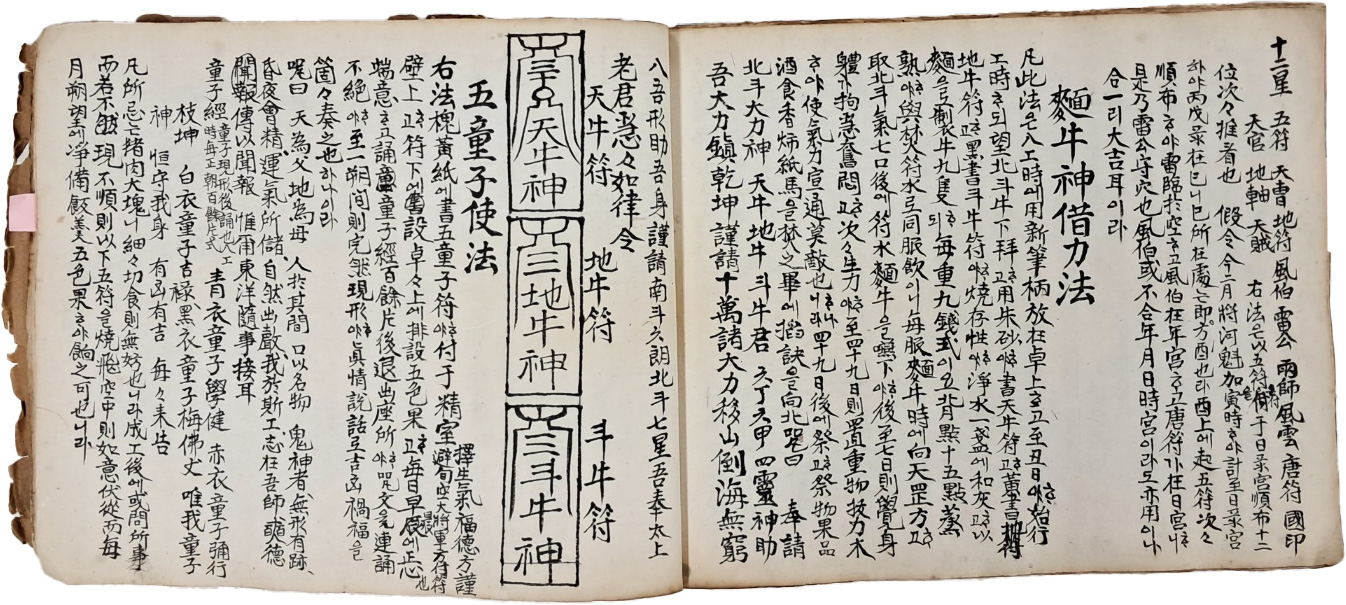 十二星 五符 天曺 地符 風伯 雷公 雨師 風雲 唐符 國印
天官 地軸 天賊 右法은 以五符 于日彔宮順布十二
位次々推者也 假令今二月將河魁加寅時하야計至日彔宮
하야丙戊彔在巳니巳所在處는即酉方也라酉上에起五符次々
順布하야雷臨於空하고風伯在年宮하고唐符가在日宮니
是乃雷公守穴也風伯或不合年月日時宮이라도亦用이나
合一리大吉耳이라
麵牛神借力法
凡此法은八工時에用新筆柄放在卓上하고至丑日야始行
工時되望北斗牛下拜고用朱砂야書天牛符고黃書
地牛符고黑書斗牛符야燒存性야淨水一盞에和灰고以
麵을製衣牛九隻되每重九錢式이오背點十五點蒸
熟야與焚符水로同服飮이니每服麵牛時에向天罡方고
取北斗氣七口後에符水麵牛을嚥下야後至七日則覺身
軆야拘急奮悶고次々生力야至四十九日則置重物技力木
야使氣力宣通莫敵也니라四十九日後에祭고祭物果品
酒食香烛紙馬을焚之畢에搯訣을向北咒曰 奉請
北斗大力神 天牛地牛 斗牛君 六丁六甲四靈神助
吾大力鎭乾坤謹請十萬諸大力移山倒海無窮
八吾形助吾身謹請南斗六朗北斗七星吾奉太上
老君急々如律令
天牛符 地牛符 斗牛符
天牛神
地牛神
斗牛神
五童子使法
擇生氣福德方謹
避旬空大將軍方符
右法槐黃紙에書五童子符야付于精室
壁上고符下에設卓々上에排設五色果고每日早晨에忘
端意고誦童子經百餘片後退出座所야咒文을連誦
不絕야至一朔間則完能現形야眞情說話로吉凶禍福을
箇々奏之也하나이라
咒曰 天為父地為母 人於其間 口以名物 鬼神者無形有跡
昏夜會精運氣所儲自然出戯我於斯工志在吾師醜德
聞報傳以聞報 惟甯東洋隨事接耳
童子經 童子現形後誦也工時每正朝百餘片式 青衣童子學健 赤衣童子彌行
枝坤 白衣童子吉祿黑衣童子梅佛丈 唯我童子
神 恒守我身 有凶有吉 每々來告
凡所忌는猪肉大塊니細々切食則無妨也니라成工後에或問所事
而若不能現不順則以下五符을燒飛空中則如意伏從而每
月朔望에淨備飯羹五色果하야餉之可也니라